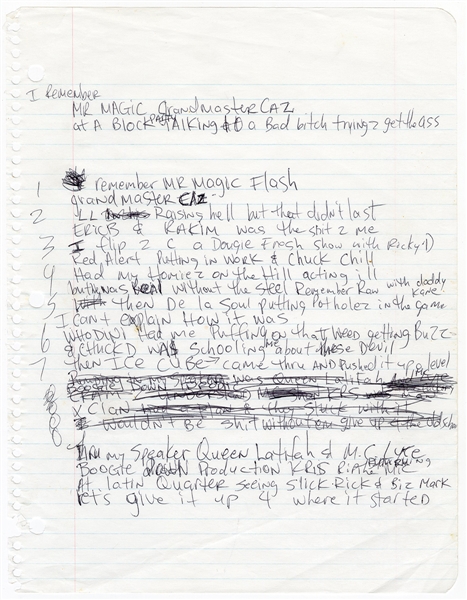 I Remember
MR MAGIC Grandmaster CAZ
at A BLOCK PARTY TALKING TO a Bad bitch trying 2 get the ass
1 remember MR Magic Flash
grandmaster CAZ
2 LL Raising hell but that didn't last
ERIC B & RAKIM was the shit 2 me
3 I flip 2 C a Dougie Fresh show with Ricky D
Red Alert Putting in WORK & Chuck Chill
4 Had my Homiez on the Hill acting ill
but was real without the Steel Remember Raw with daddy Kane!
5 then De la Soul putting Potholez in the game
I can't explain How it was
6 WHODINI Had me Puffing on that Weed getting BUZZ
& CHUCK D WAS Schooling me about these Devil
7 Then ICE CUBE came thru AND Pushed it up level
was Queen Latifah
8
X Clan had a plan & they Stuck with it
8 I Wouldn't Be Shit without em give up 2 the oldsch
Thru my Speaker Queen Latifah & M.C. Lyte
BOOGIE DOWN PRODUCTION KRS the Mic
At Latin Quarter seeing Slick Rick & Biz Mark
let's give it up 4 where it started